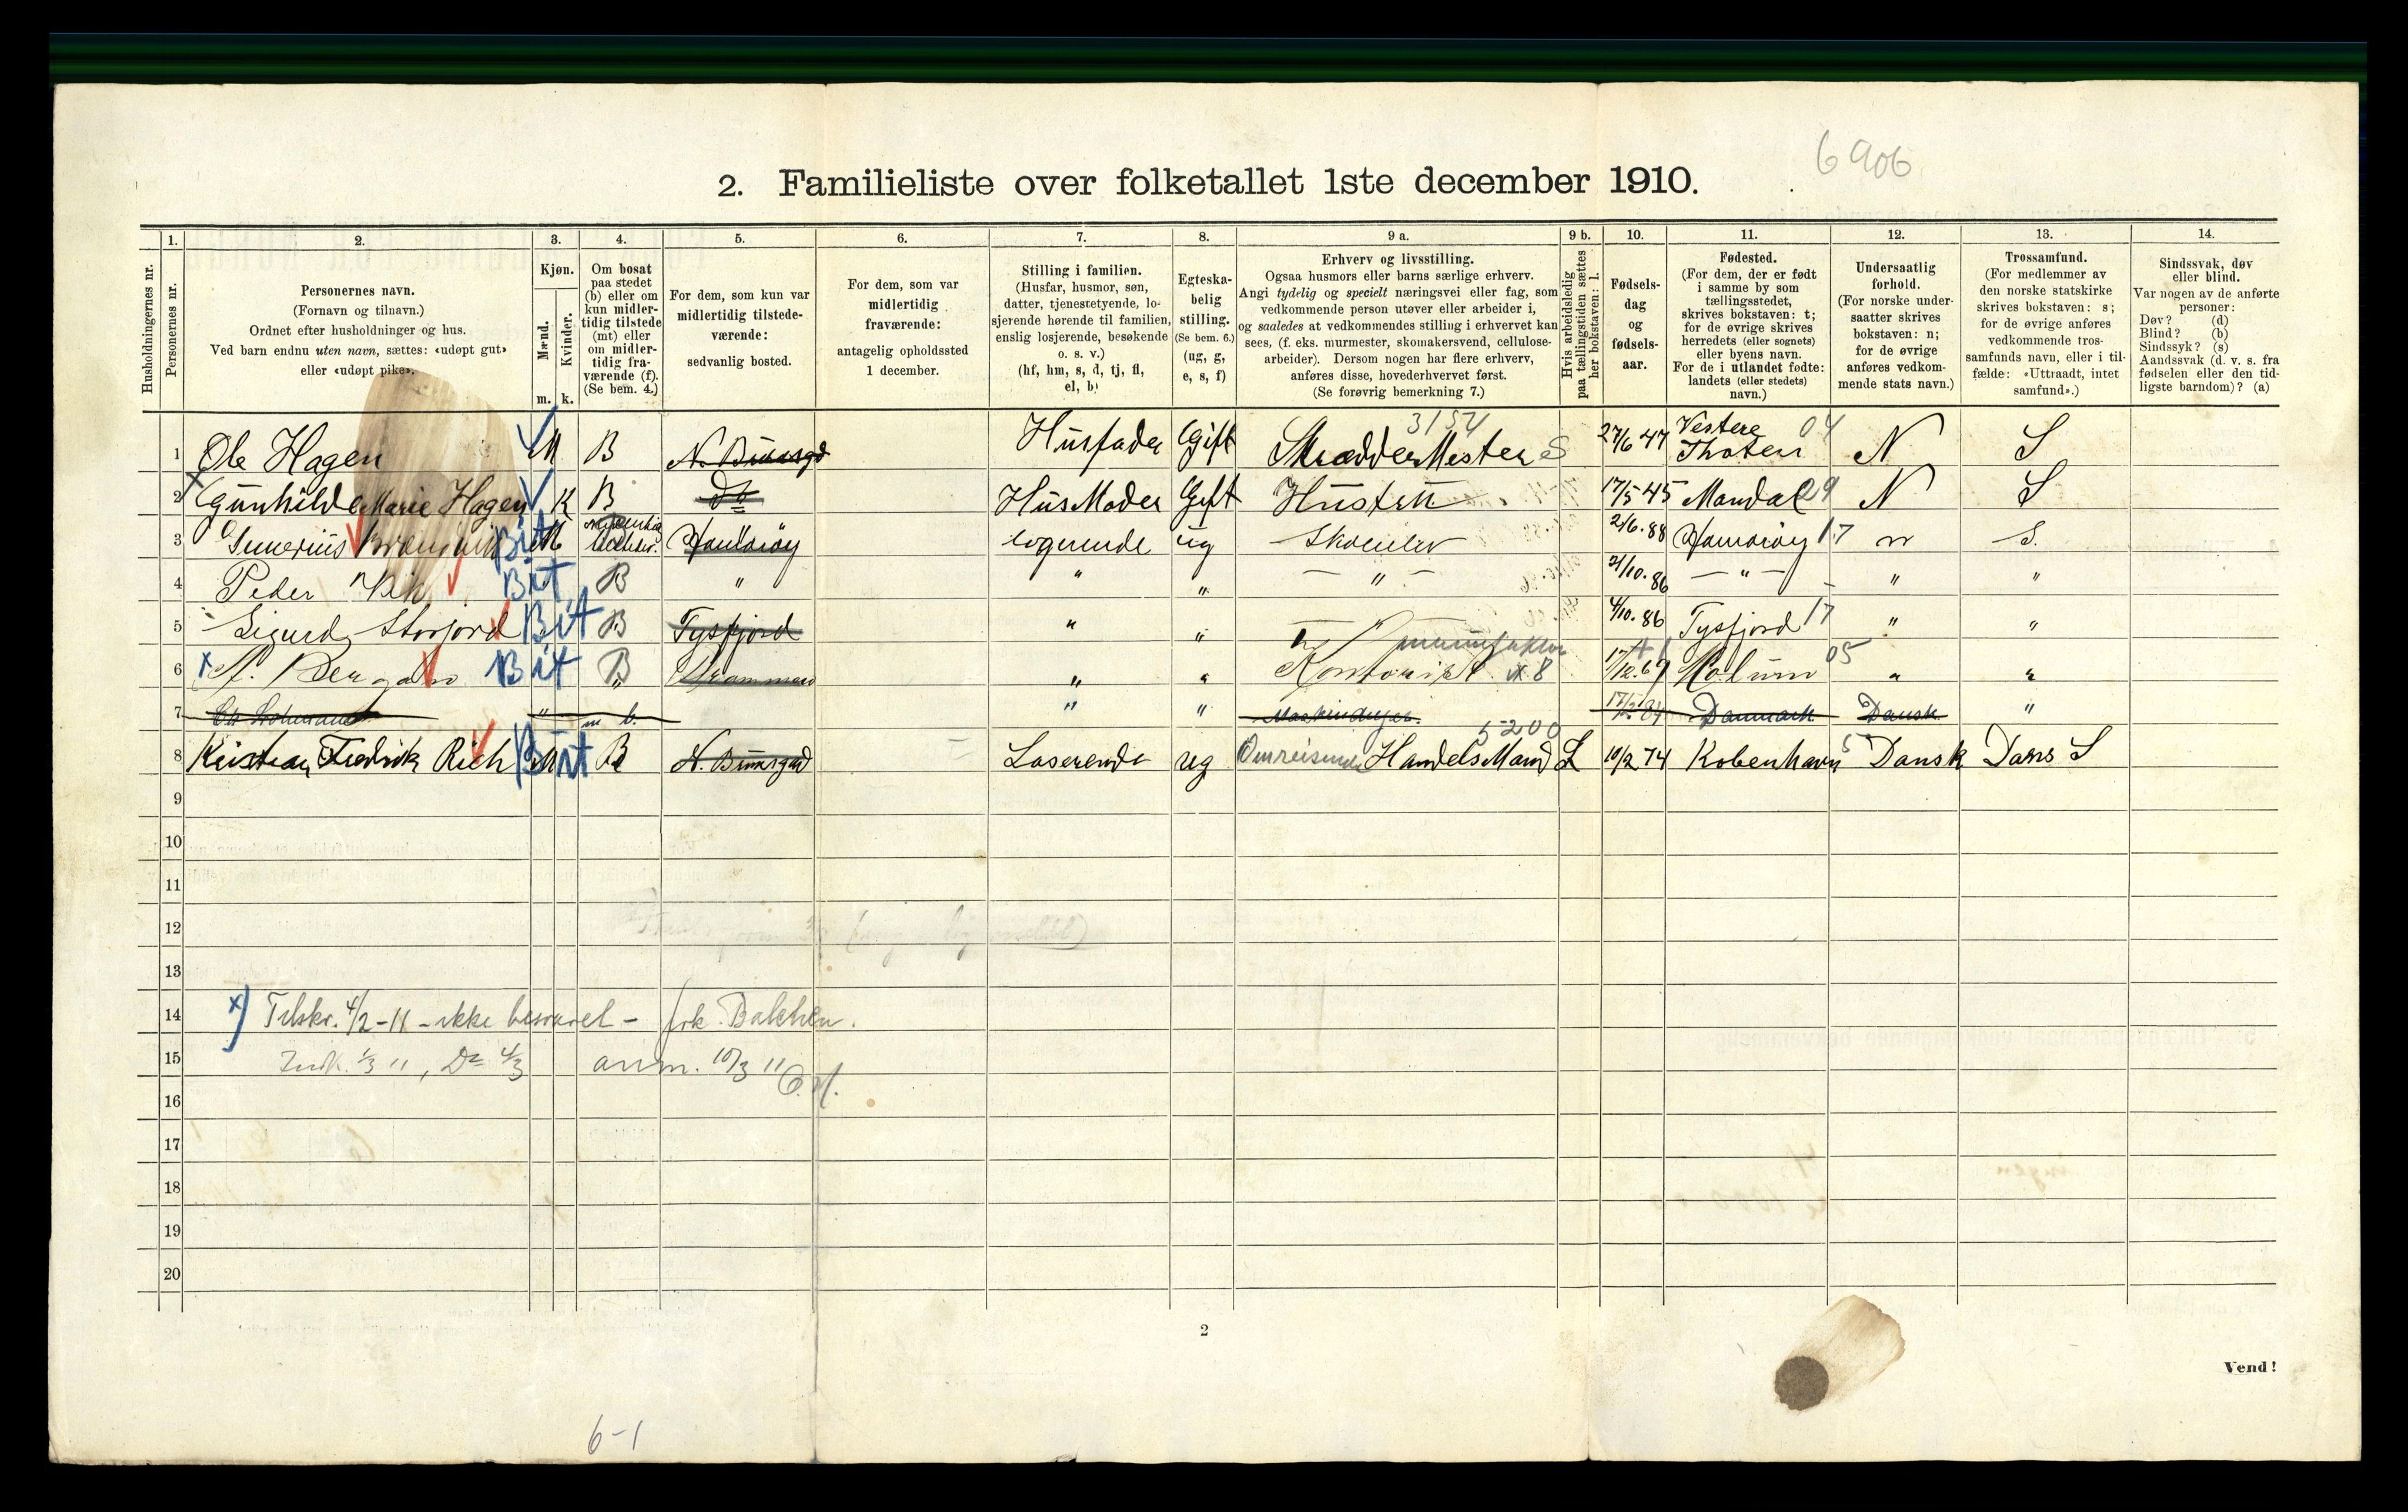 6906
2. Familieliste over folketallet 1ste december 1910.
Husholdningernes nr.
1.
Personernes nr.
2.
Personernes navn.
(Fornavn og tilnavn.)
Ordnet efter husholdninger og hus.
Ved barn endnu uten navn, sættes: «udøpt gut»
eller «udøpt pike».
3.
Kjøn.
Mænd.
Kvinder.
m. k.
4.
Om bosat
paa stedet
(b) eller om
kun midler-
tidig tilstede
(mt) eller
om midler-
tidig fra-
værende (f).
(Se bem. 4.)
5.
For dem, som kun var
midlertidig tilstede-
værende:
sedvanlig bosted.
6.
For dem, som var
midlertidig
fraværende:
antagelig opholdssted
1 december.
7.
Stilling i familien.
(Husfar, husmor, søn,
datter, tjenestetyende, lo-
sjerende hørende til familien,
enslig losjerende, besøkende
o. s. v.)
(hf, hm, s, d, tj, fl,
el, b)
8.
Egteska-
belig
stilling.
(Se bem. 6.)
(ug, g,
e, s, f)
9 a.
Erhverv og livsstilling.
Ogsaa husmors eller barns særlige erhverv.
Angi tydelig og specielt næringsvei eller fag, som
vedkommende person utøver eller arbeider i,
og saaledes at vedkommendes stilling i erhvervet kan
sees, (f. eks. murmester, skomakersvend, cellulose-
arbeider). Dersom nogen har flere erhverv,
anføres disse, hovederhvervet først.
(Se forøvrig bemerkning 7.)
9 b.
Hvis arbeidsledig
paa tællingstiden sættes
her bokstaven: l.
10.
Fødsels-
dag
og
fødsels-
aar.
11.
Fødested.
(For dem, der er født
i samme by som
tællingsstedet,
skrives bokstaven: t;
for de øvrige skrives
herredets (eller sognets)
eller byens navn.
For de i utlandet fødte:
landets (eller stedets)
navn.)
12.
Undersaatlig
forhold.
(For norske under-
saatter skrives
bokstaven: n;
for de øvrige
anføres vedkom-
mende stats navn.)
13.
Trossamfund.
(For medlemmer av
den norske statskirke
skrives bokstaven: s;
for de øvrige anføres
vedkommende tros-
samfunds navn, eller i til-
fælde: «Uttraadt, intet
samfund».)
14.
Sindssvak, døv
eller blind.
Var nogen av de anførte
personer:
Døv? (d)
Blind? (b)
Sindssyk? (s)
Aandssvak (d. v. s. fra
fødselen eller den tid-
ligste barndom)? (a)
1 Ole Hagen M B Husfader Gift 3154 Skrædder Mester S 27/6 47 Vestere Thoten 04 N S
2 x Gunhilde Marie Hagen K B do Hus Moder Gift Hustru 17/5 45 Mandal 29 N S
3 Bit M Hamarøy logerende ug Skoelev 2/6.88 Hamarøy 17 n S.
4 Peder Bit B " " " — " — 21/10.86 — " — " "
5 Sigurd Storfjord Bit B Tysfjord " " — " 4/10.86 Tysfjord 17 " "
6 x Bit B Drammen " " Kontorist 8 17/12.69 Holum 05 " "
7 " " " Danmark Dansk "
8 Kristian Fredrik Rich Bit M B Loserende ug 5200 Omreisende Handels Mand L 10/2 74 Kobenhavn Dansk Dans S
9
10
11
12
13
14 x) Tilskr. 4/2-11 - ikke besvaret - frk. Balchen.
15 1/3 11, Do 4/3 anm. 10/3 11
16
17
18
19
20
2
Vend!
6-1